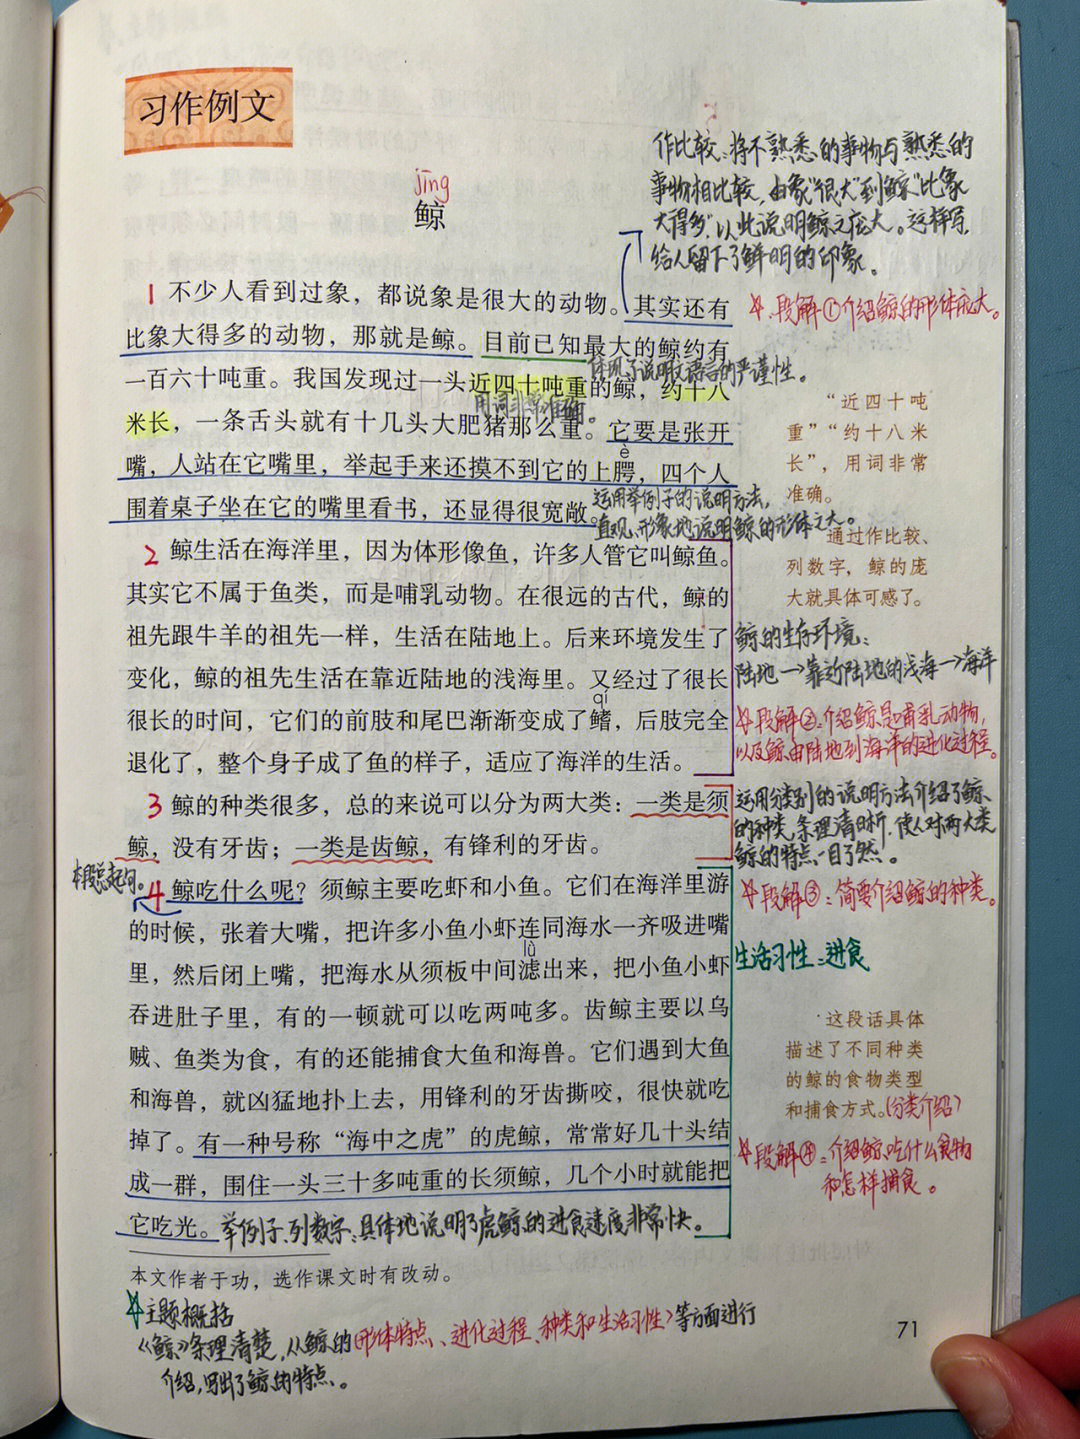 习作例文
作比较：将不熟悉的事物与熟悉的
事物相比较，由象“很大”到鲸“比象
大得多”，以此说明鲸之庞大。这样写，
给人留下了鲜明的印象。
jīng
鲸
1 不少人看到过象，都说象是很大的动物。其实还有
段解①介绍鲸的形体庞大。
比象大得多的动物，那就是鲸。目前已知最大的鲸约有
体现了说明文语言的严谨性。
一百六十吨重。我国发现过一头近四十吨重的鲸，约十八
用词非常准确。
米长，一条舌头就有十几头大肥猪那么重。它要是张开
“近四十吨
重”“约十八米
长”，用词非常
准确。
è
嘴，人站在它嘴里，举起手来还摸不到它的上腭，四个人
围着桌子坐在它的嘴里看书，还显得很宽敞。
运用举例子的说明方法，
直观、形象地说明鲸的形体之大。
通过作比较、
列数字，鲸的庞
大就具体可感了。
2 鲸生活在海洋里，因为体形像鱼，许多人管它叫鲸鱼。
其实它不属于鱼类，而是哺乳动物。在很远的古代，鲸的
祖先跟牛羊的祖先一样，生活在陆地上。后来环境发生了
变化，鲸的祖先生活在靠近陆地的浅海里。又经过了很长
qí
很长的时间，它们的前肢和尾巴渐渐变成了鳍，后肢完全
退化了，整个身子成了鱼的样子，适应了海洋的生活。
鲸的生存环境：
陆地→靠近陆地的浅海→海洋
段解②：介绍鲸是哺乳动物，
以及鲸由陆地到海洋的进化过程。
3 鲸的种类很多，总的来说可以分为两大类：一类是须
鲸，没有牙齿；一类是齿鲸，有锋利的牙齿。
运用分类别的说明方法介绍了鲸
的种类，条理清晰，使人对两大类
鲸的特点一目了然。
段解③：简要介绍鲸的种类。
本段总起句。
4 鲸吃什么呢？须鲸主要吃虾和小鱼。它们在海洋里游
的时候，张着大嘴，把许多小鱼小虾连同海水一齐吸进嘴
lǜ
里，然后闭上嘴，把海水从须板中间滤出来，把小鱼小虾
吞进肚子里，有的一顿就可以吃两吨多。齿鲸主要以乌
贼、鱼类为食，有的还能捕食大鱼和海兽。它们遇到大鱼
和海兽，就凶猛地扑上去，用锋利的牙齿撕咬，很快就吃
掉了。有一种号称“海中之虎”的虎鲸，常常好几十头结
成一群，围住一头三十多吨重的长须鲸，几个小时就能把
它吃光。
举例子、列数字：具体地说明了虎鲸的进食速度非常快。
生活习性：进食
这段话具体
描述了不同种类
的鲸的食物类型
和捕食方式。(分类介绍)
段解④：介绍鲸吃什么食物
和怎样捕食。
本文作者于功，选作课文时有改动。
主题概括
《鲸》条理清楚，从鲸的(形体特点、进化过程、种类和生活习性)等方面进行
介绍，写出了鲸的特点。
71